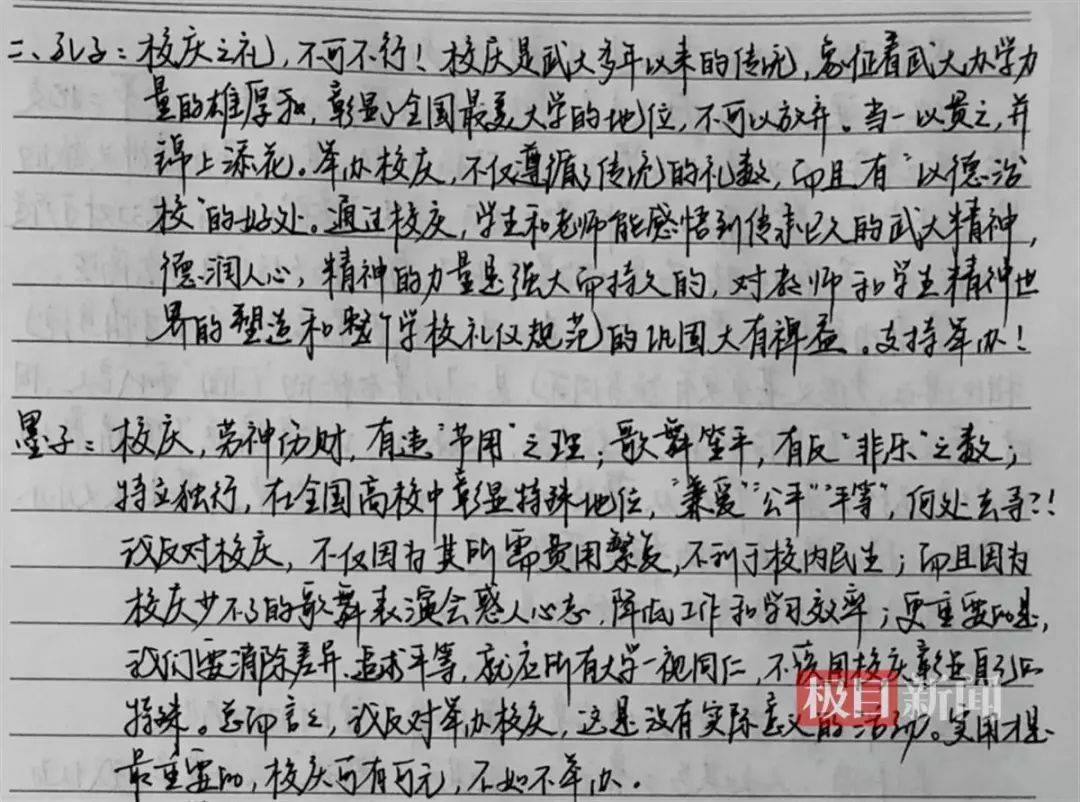 二、孔子：校庆之礼，不可不行！校庆是武大多年以来的传统，象征着武大办学力
量的雄厚和，彰显了全国最美大学的地位，不可以放弃。当一以贯之，并
锦上添花。举办校庆，不仅遵循了传统的礼数，而且有“以德治
校”的好处。通过校庆，学生和老师能感悟到传承已久的武大精神，
德润人心，精神的力量是强大而持久的，对教师和学生精神世
界的塑造和整个学校礼仪规范的巩固大有裨益。支持举办！
墨子：校庆，劳神伤财，有违“节用”之理；歌舞笙平，有反“非乐”之数；
特立独行，在全国高校中彰显特殊地位，“兼爱”“公平”“平等”，何处去寻？！
我反对校庆，不仅因为其所需费用繁复，不利于校内民生；而且因为
校庆少不了的歌舞表演会惑人心志，降低工作和学习效率；更重要的是，
我们要消除差异、追求平等，就应所有大学一视同仁，不该用校庆彰显自己的
特殊。总而言之，我反对举办校庆，这是没有实际意义的活动。实用才是
最重要的，校庆可有可无，不如不举办。
极目新闻